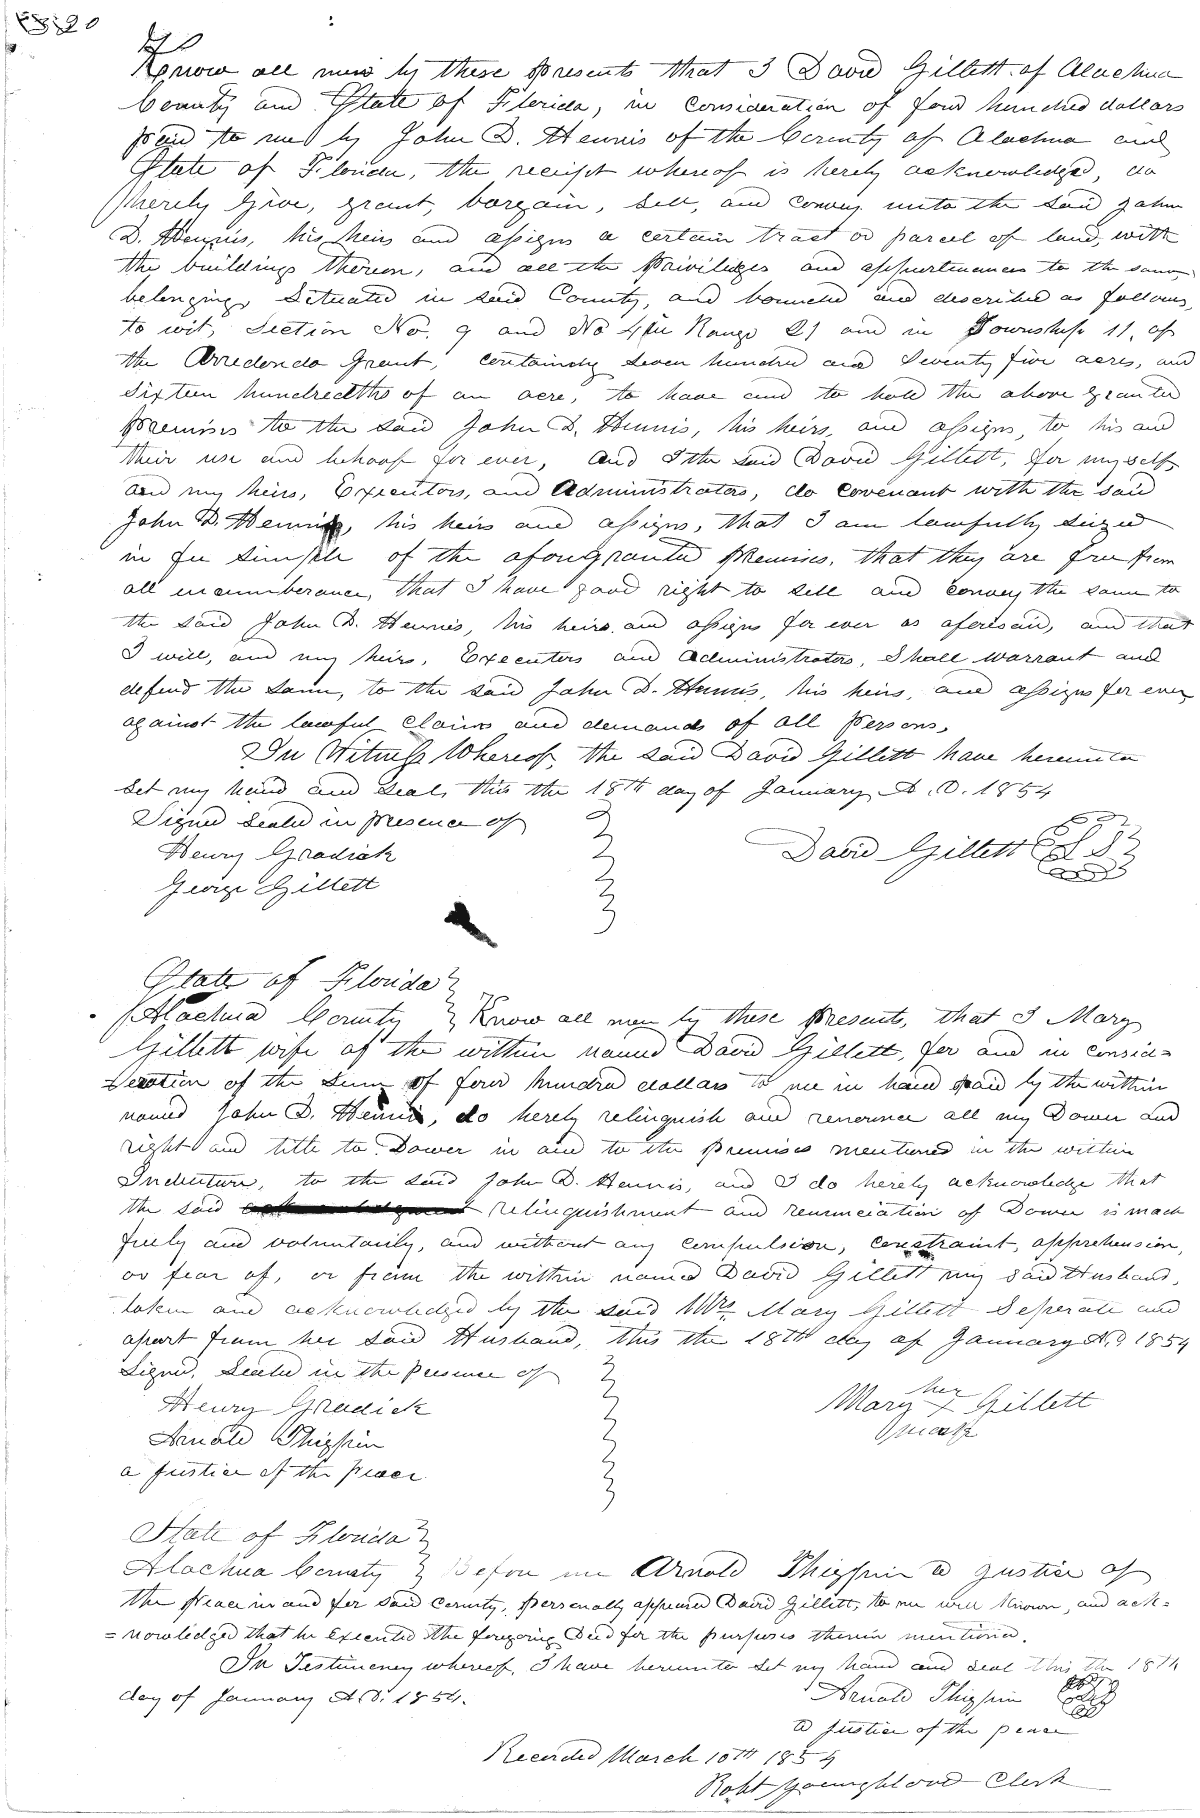 20
Know all men by these presents that I David Gillett of Alachua
County and State of Florida, in consideration of four hundred dollars
paid to me by John D. Hennis of the County of Alachua and
State of Florida, the receipt whereof is hereby acknowledged, do
hereby Give, grant, bargain, sell, and convey unto the said John
D. Hennis, his heirs and assigns a certain tract or parcel of land, with
the buildings thereon, and all the priviledges and appurtenances to the same,
belonging, Situated in said County, and bounded and described as follows,
to wit, Section No. 9 and No 4 in Range 21 and in Township 11, of
the Arredondo Grant, containing seven hundred and seventy five acres, and
sixteen hundredths of an acre, to have and to hold the above granted
premises to the said John D. Hennis, his heirs, and assigns, to his and
their use and behoof for ever, and I the said David Gillett, for myself,
and my heirs, Executors, and Administrators, do covenant with the said
John D. Hennis, his heirs and assigns, that I am lawfully seized
in fee simple of the aforegranted premises, that they are free from
all incumberance, that I have good right to sell and convey the same to
the said John D. Hennis, his heirs and assigns for ever as aforesaid, and that
I will, and my heirs, Executors and Administrators, Shall warrant and
defend the same, to the said John D. Hennis, his heirs, and assigns for ever,
against the lawful claims and demands of all persons.
In Witness Whereof, the said David Gillett have hereunto
set my hand and seal, this the 18th day of January A.D. 1854
Signed sealed in presence of
Henry Gradick
David Gillett LS
George Gillett
State of Florida
Alachua County Know all men by these presents, that I Mary
Gillett wife of the within named David Gillett, for and in consid=
=eration of the sum of four hundred dollars to me in hand paid by the within
named John D. Hennis, do hereby relinquish and renounce all my Dower and
right and title to Dower in and to the premises mentioned in the within
Indenture, to the said John D. Hennis, and I do hereby acknowledge that
the said relinquishment and renunciation of Dower is made
freely and voluntarily, and without any compulsion, constraint, apprehension,
or fear of, or from the within named David Gillett my said Husband,
taken and acknowledged by the said Mrs Mary Gillett Seperate and
apart from her said Husband, this the 18th day of January A.D. 1854
Signed, Sealed in the presence of
Henry Gradick
her
Mary X Gillett
mark
Arnold Thigpin
a Justice of the peace
State of Florida
Alachua County Before me Arnold Thigpin a Justice of
the Peace in and for said County, personally appeared David Gillett, to me well known, and ack=
=nowledged that he Executed the foregoing Deed for the purposes therein mentioned.
In Testimoney whereof, I have hereunto set my hand and seal this the 18th
day of January A.D. 1854.
Arnold Thigpin
a Justice of the peace
Recorded March 10th 1854
Robt Youngblood Clerk